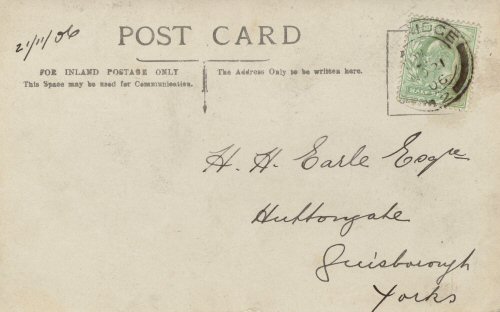 21/11/06
POST CARD
FOR INLAND POSTAGE ONLY
This Space may be used for Communication.
The Address Only to be written here.
HALF
H. H. Earle Esqre
Huttongate
Guisborough
Yorks